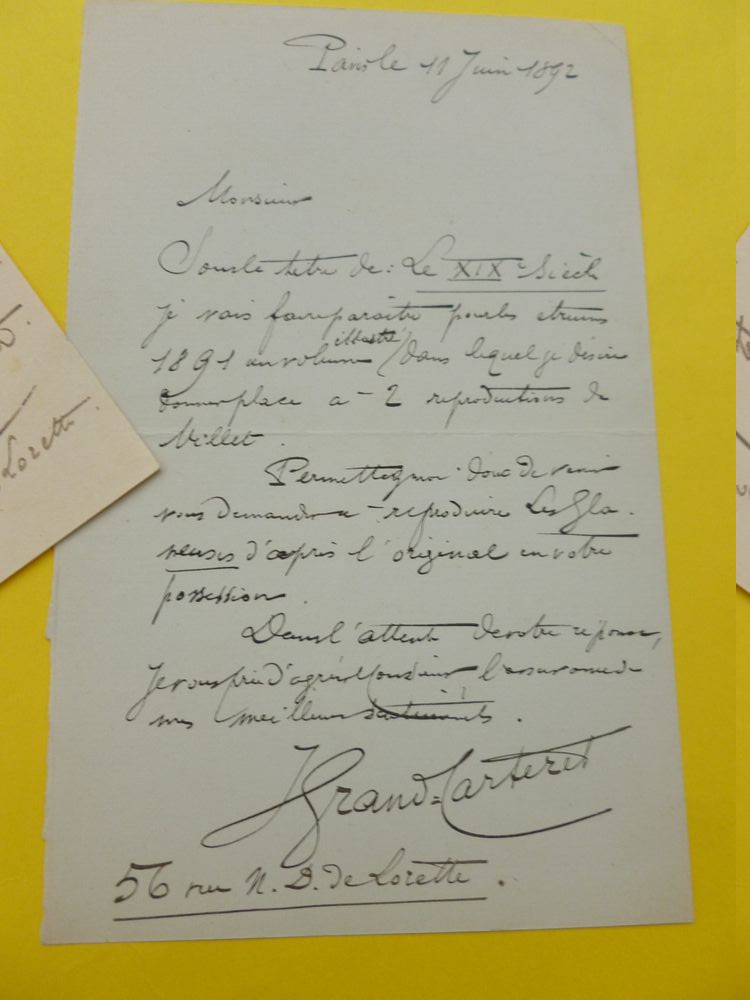 Paris le 11 Juin 1892
Monsieur
Sous le titre de : Le XIXe Siècle
je vais faire paraître pour les étrennes
illustré
1891 un volume dans lequel je désire
donner place a - 2 reproductions de
Millet.
Permettez moi donc de venir
vous demander a - reproduire Les Gla-
neuses d'après l'original en votre
possession.
Dans l'attente de votre réponse,
Je vous prie d'agréer Monsieur l'assurance de
mes meilleurs sentiments.
J Grand=Carteret
56 rue N. D. de Lorette.
Lorette.